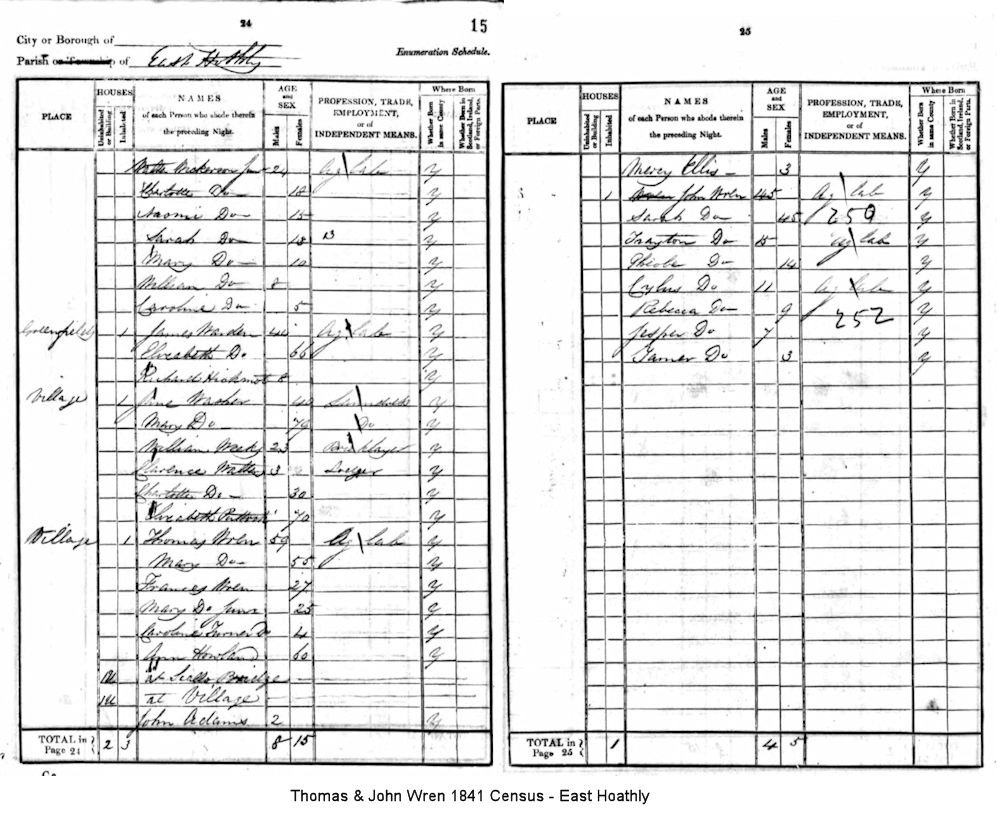 24
15
City or Borough of
Parish or Township of East Hothly
Enumeration Schedule.
PLACE
HOUSES
Uninhabited or Building
Inhabited
NAMES
of each Person who abode therein
the preceding Night.
AGE
and
SEX
Males
Females
PROFESSION, TRADE,
EMPLOYMENT,
or of
INDEPENDENT MEANS.
Where Born
Whether Born in same County
Whether Born in Scotland, Ireland, or Foreign Parts.
24 Ag lab y
Charlotte Do 18 y
Naomi Do 15 y
Sarah Do 13 13 y
Mary Do 10 y
William Do 8 y
Caroline Do 5 y
1 James Warden 44 Ag lab y
Elizabeth Do 66 y
Richard Hickmot 8 y
Village 1 Jane Washer 40 y
Mary Do 79 Do y
William Weeks 23 Bricklayer y
Clarence 3 Lodger y
Charlotte Do 30 y
Elizabeth 70 y
Village 1 Thomas Wren 59 Ag lab y
Mary Do 55 y
Frances Wren 27 y
Mary Do Junr 25 y
Caroline Turner Do 4 y
Ann Howland 60 y
at Bridge
at Village
John Adams 2 y
TOTAL in Page 24 2 3 8 15
25
PLACE
HOUSES
Uninhabited or Building
Inhabited
NAMES
of each Person who abode therein
the preceding Night.
AGE
and
SEX
Males
Females
PROFESSION, TRADE,
EMPLOYMENT,
or of
INDEPENDENT MEANS.
Where Born
Whether Born in same County
Whether Born in Scotland, Ireland, or Foreign Parts.
Mercy Ellis 3 y
1 John Wren 45 Ag lab y
Sarah Do 45 259 y
Trayton Do 15 Ag lab y
Do 14 y
Cyrus Do 11 Ag lab y
Rebecca Do 9 252 y
Jesper Do 7 y
Tamer Do 3 y
TOTAL in Page 25 1 4 5
Thomas & John Wren 1841 Census - East Hoathly